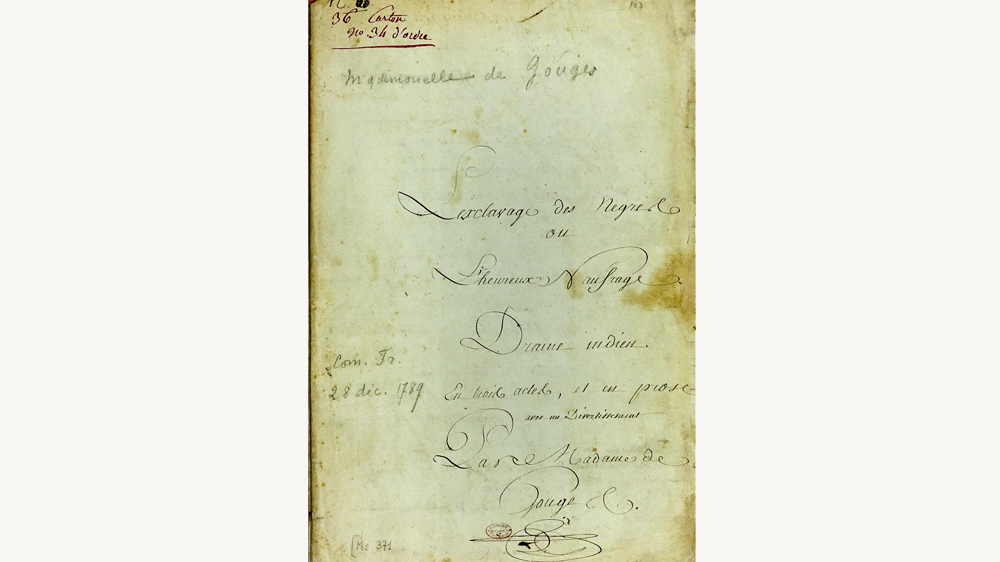 36e Carton
no. 34 d'ordre
107
Mademoiselle de Gouges
L'esclavage des Negres
ou
L'heureux Naufrage.
Drame indien.
Com. Fr.
28 déc. 1789
En trois actes, et en prose
avec un Divertissement
Par Madame de
Gouges.
Ms 371